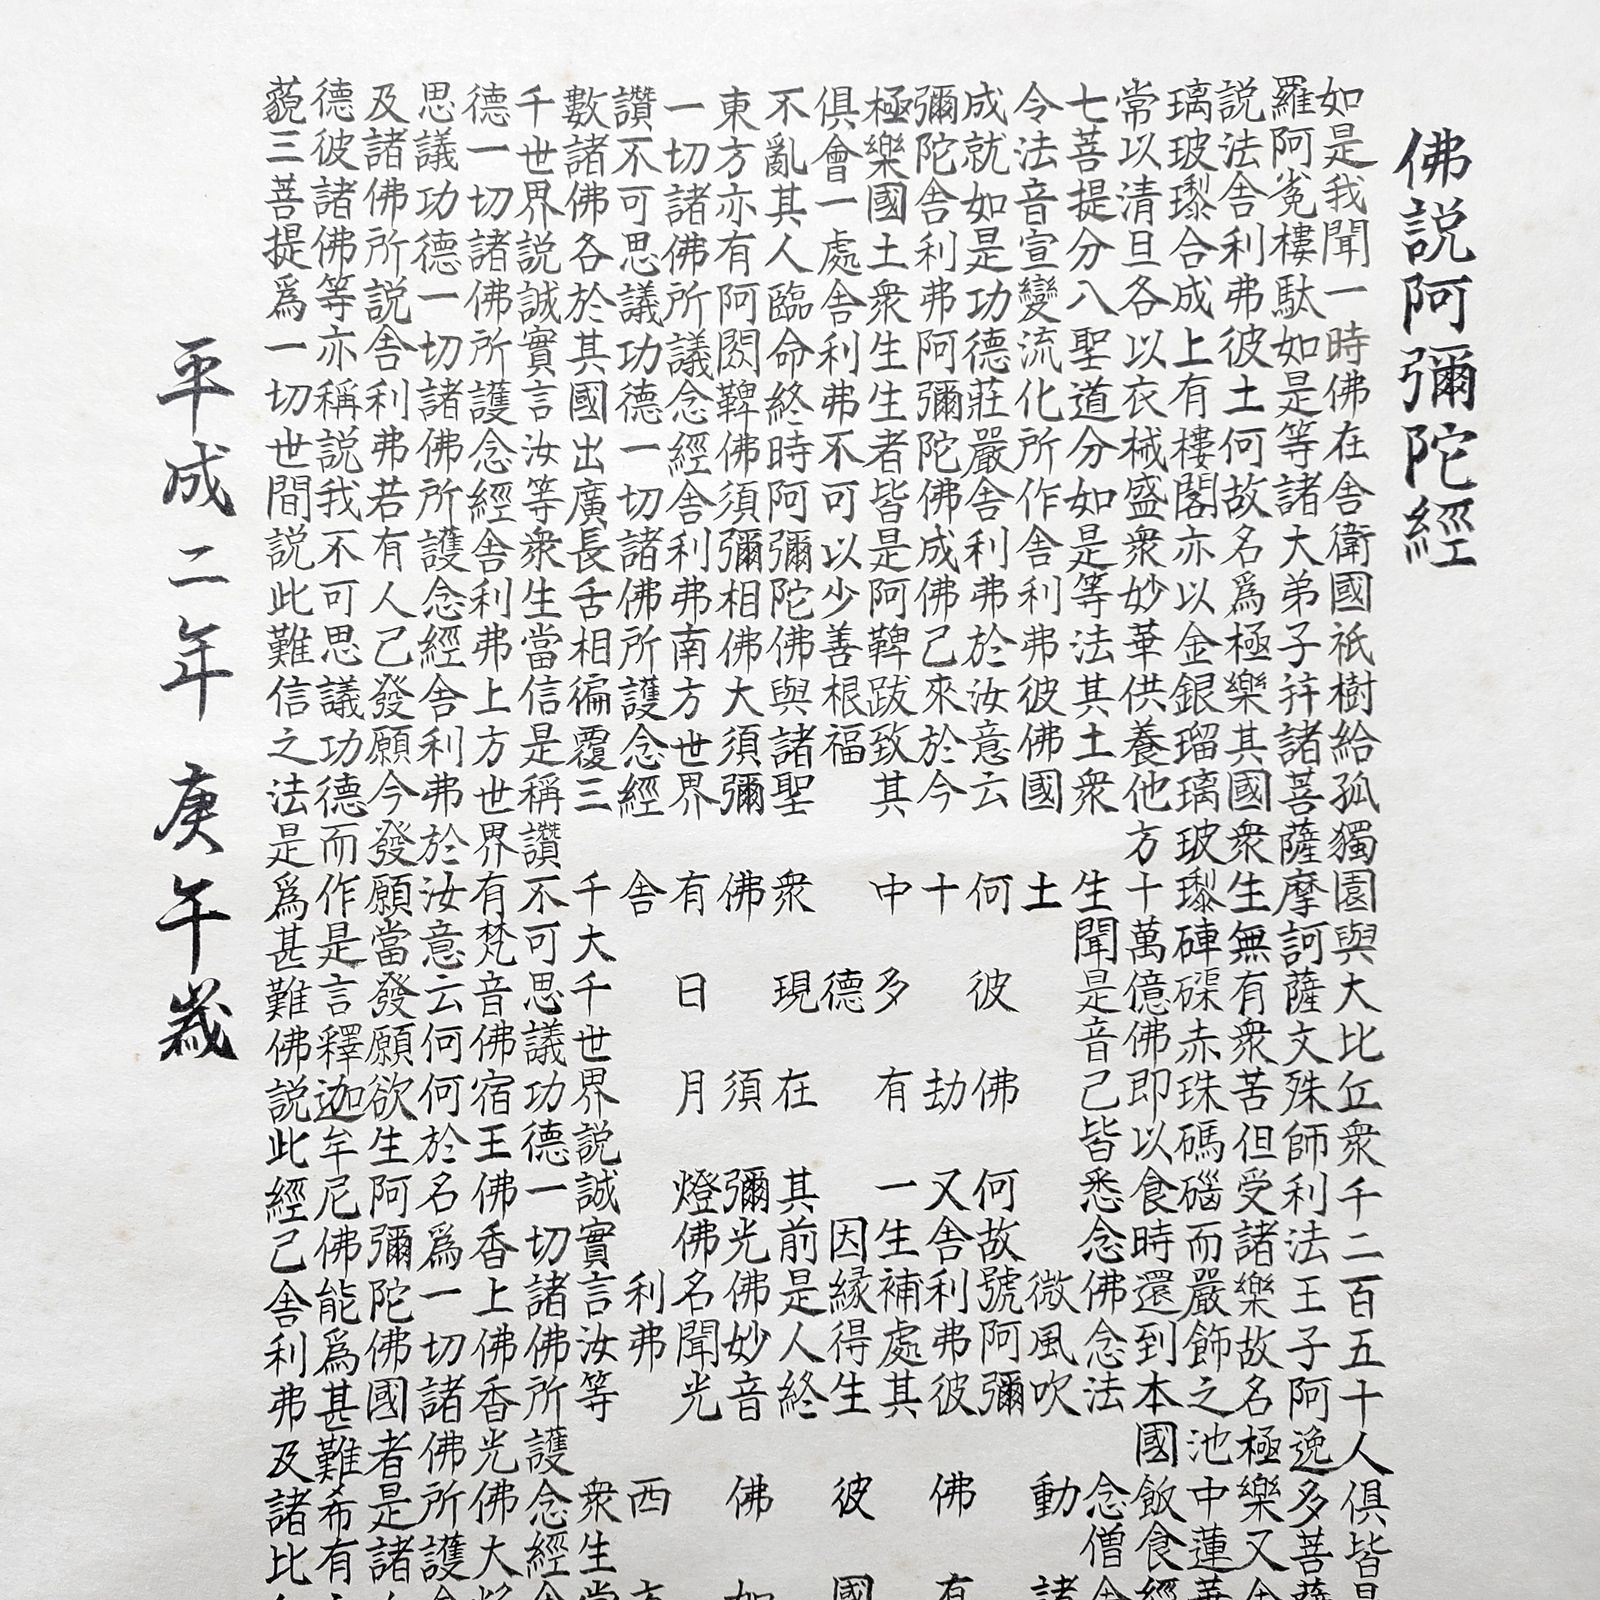 佛説阿彌陀經
如是我聞一時佛在舍衛國祇樹給孤獨園與大比丘衆千二百五十人俱皆是
羅阿㝹樓駄如是等諸大弟子并諸菩薩摩訶薩文殊師利法王子阿逸多菩薩
説法舍利弗彼土何故名爲極樂其國衆生無有衆苦但受諸樂故名極樂又舍
璃玻瓈合成上有樓閣亦以金銀瑠璃玻瓈硨磲赤珠碼碯而嚴飾之池中蓮華
常以清旦各以衣裓盛衆妙華供養他方十萬億佛即以食時還到本國飯食經
七菩提分八聖道分如是等法其土衆生聞是音已皆悉念佛念法念僧舍
令法音宣變流化所作舍利弗彼佛國土微風吹動諸
成就如是功德莊嚴舍利弗於汝意云何彼佛何故號阿彌
彌陀舍利弗阿彌陀佛成佛已來於今十劫又舍利弗彼佛有
極樂國土衆生生者皆是阿鞞跋致其中多有一生補處其
俱會一處舍利弗不可以少善根福德因縁得生彼國
不亂其人臨命終時阿彌陀佛與諸聖衆現在其前是人終
東方亦有阿閦鞞佛須彌相佛大須彌佛須彌光佛妙音佛如
一切諸佛所議念經舍利弗南方世界有日月燈佛名聞光
讚不可思議功德一切諸佛所護念經舍利弗西方
數諸佛各於其國出廣長舌相徧覆三千大千世界説誠實言汝等衆生當
千世界説誠實言汝等衆生當信是稱讚不可思議功德一切諸佛所護念經舍
德一切諸佛所護念經舍利弗上方世界有梵音佛宿王佛香上佛香光佛大
思議功德一切諸佛所護念經舍利弗於汝意云何何於名爲一切諸佛所護念
及諸佛所説舍利弗若有人已發願今發願當發願欲生阿彌陀佛國者是諸
德彼諸佛等亦稱説我不可思議功德而作是言釋迦牟尼佛能爲甚難希有
藐三菩提爲一切世間説此難信之法是爲甚難佛説此經已舍利弗及諸比
平成二年庚午歳